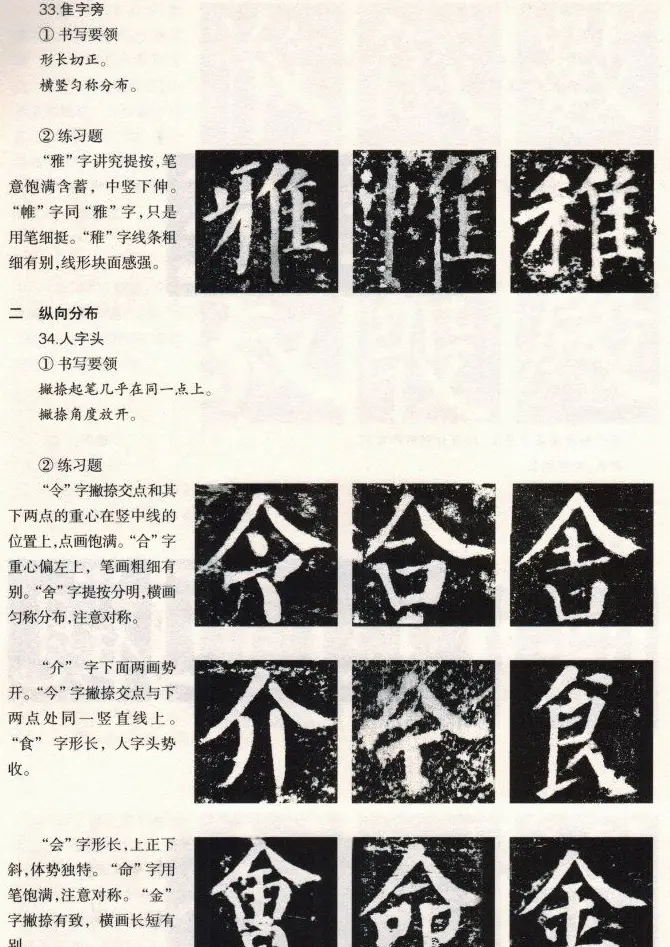 33.隹字旁
①书写要领
形长切正。
横竖匀称分布。
②练习题
“雅”字讲究提按,笔
意饱满含蓄，中竖下伸。
“帷”字同“雅”字,只是
用笔细挺。“稚”字线条粗
细有别,线形块面感强。
雅 帷 稚
二 纵向分布
34.人字头
①书写要领
撇捺起笔几乎在同一点上。
撇捺角度放开。
②练习题
“令”字撇捺交点和其
下两点的重心在竖中线的
位置上,点画饱满。“合”字
重心偏左上，笔画粗细有
别。“舍”字提按分明,横画
匀称分布,注意对称。
令 合 舍
“介” 字下面两画势
开。“今”字撇捺交点与下
两点处同一竖直线上。
“食” 字形长，人字头势
收。
介 今 食
“会”字形长,上正下
斜,体势独特。“命”字用
笔饱满,注意对称。“金”
字撇捺有致，横画长短有
别
會 命 金